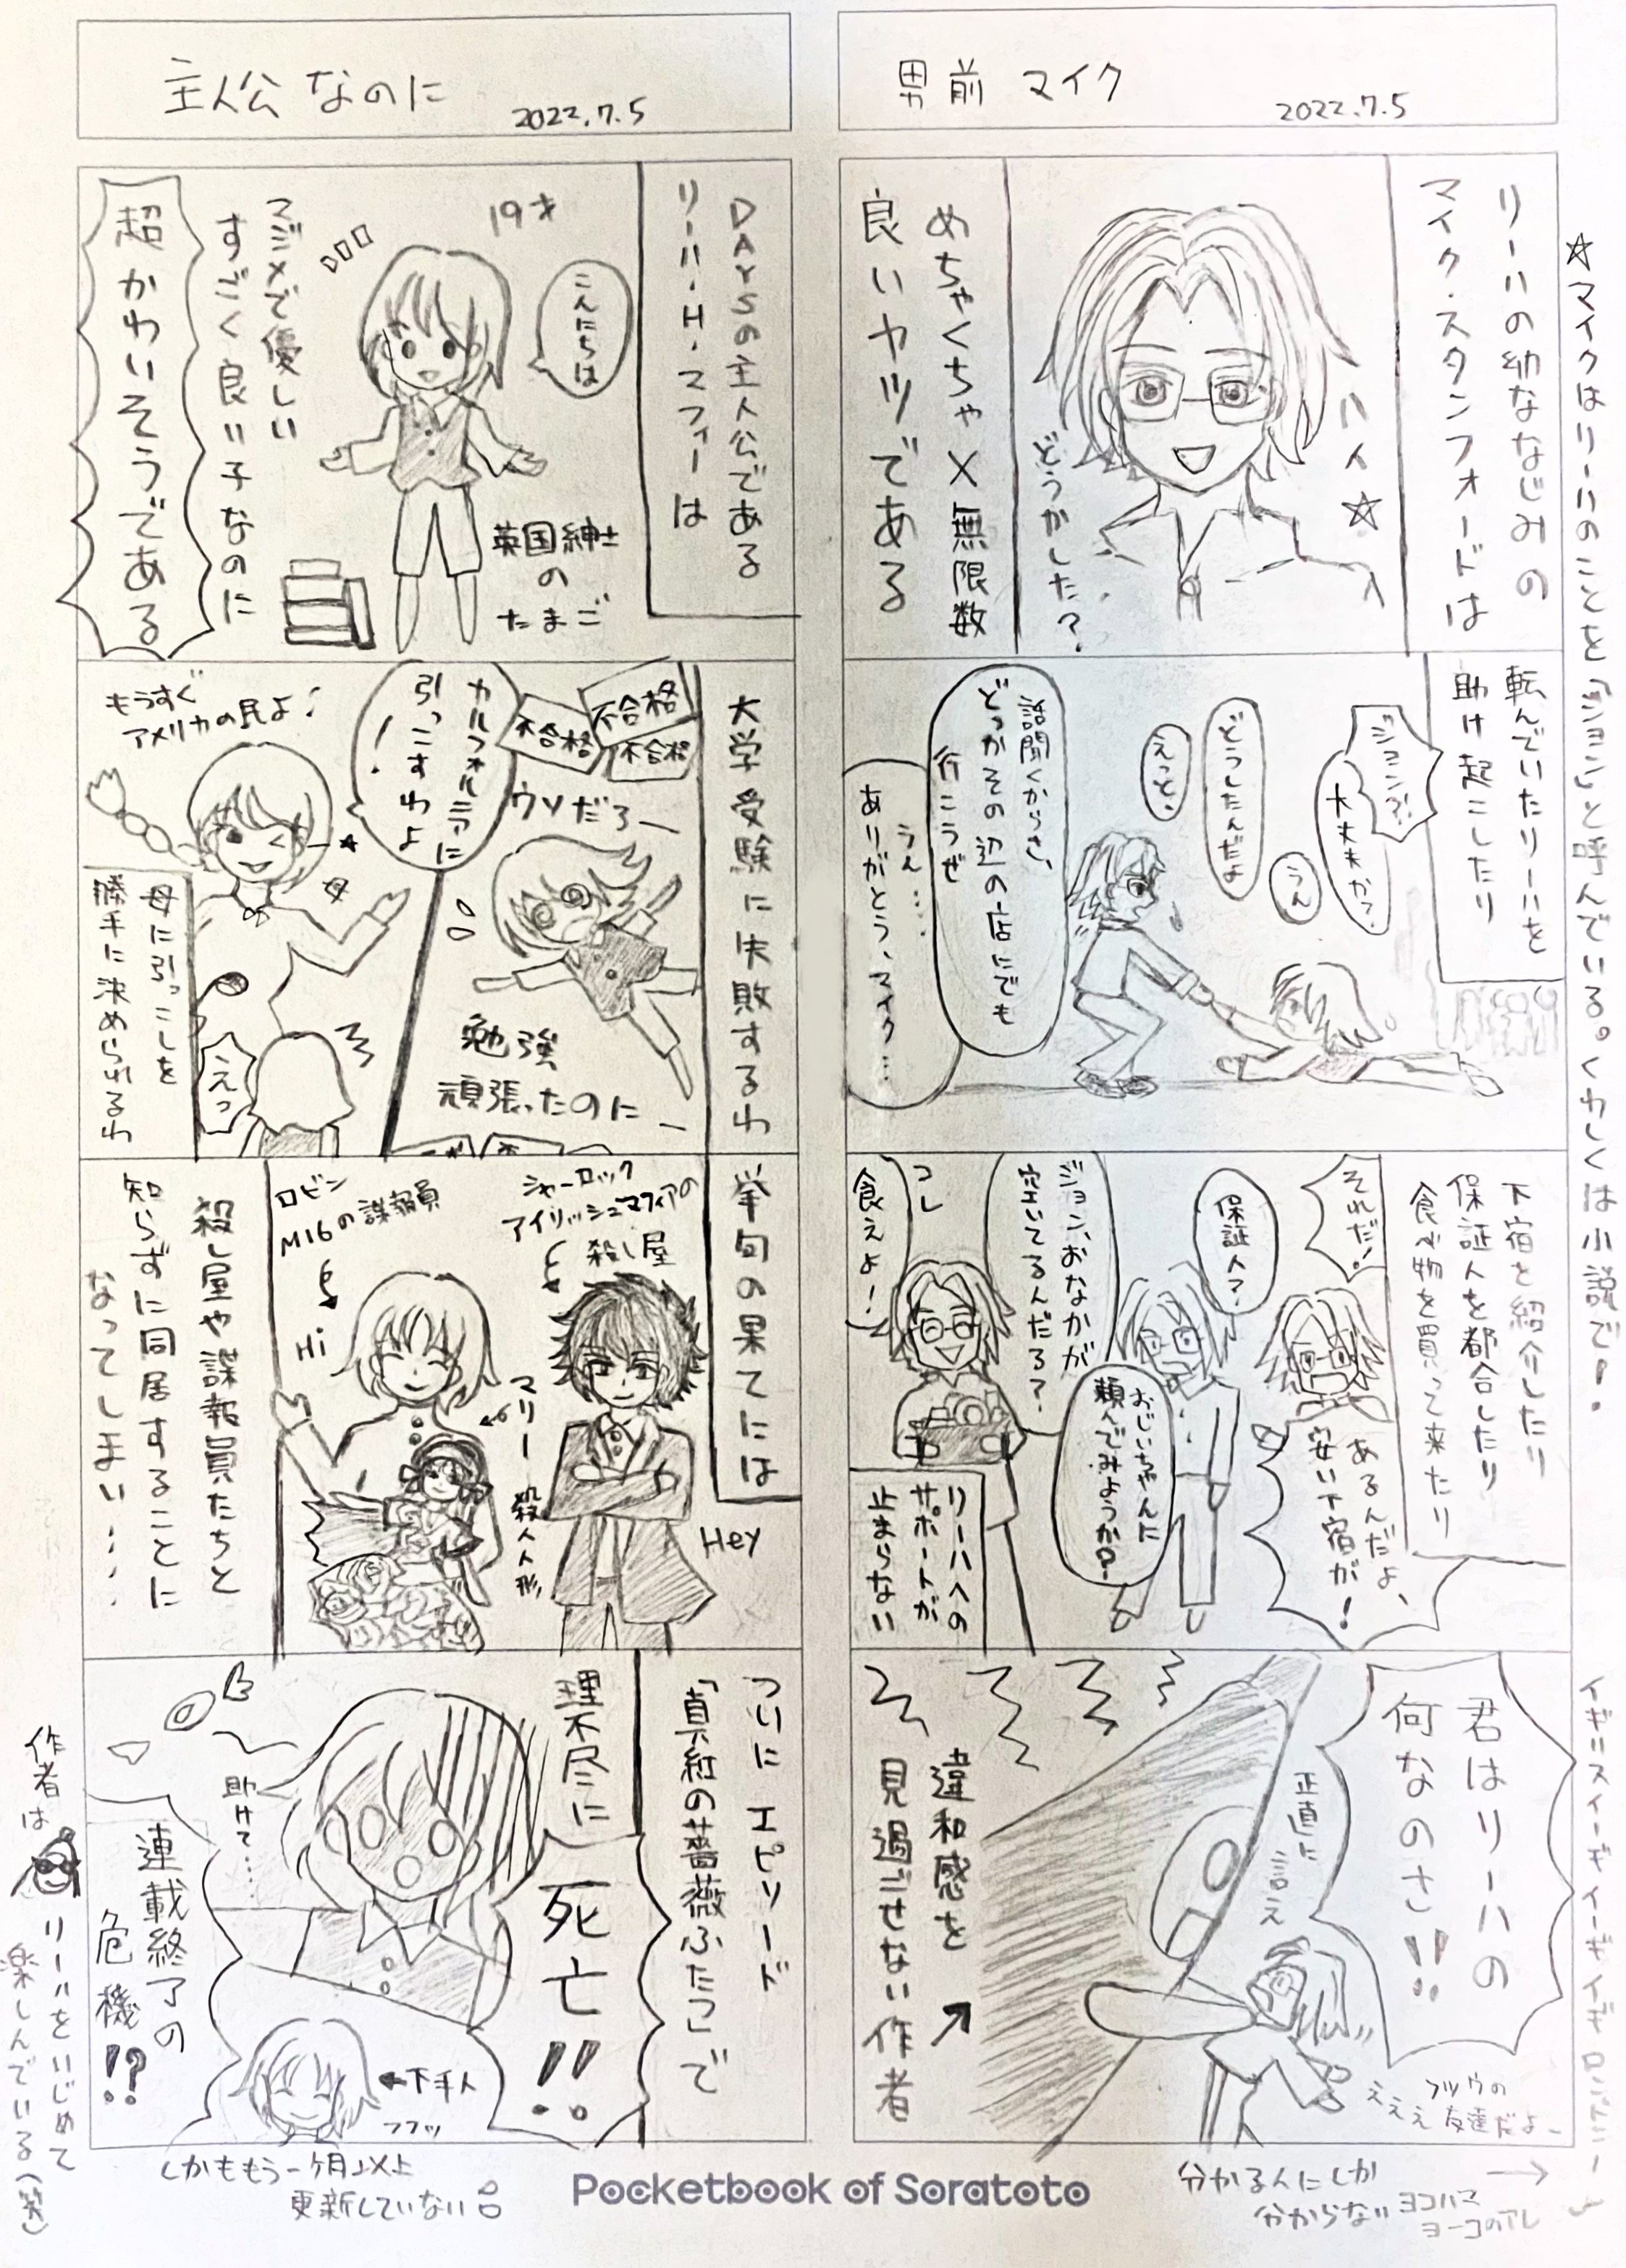 男前 マイク
2022.7.5
リーハの幼ななじみの
マイク・スタンフォードは
ハイ☆
どうかした?
めちゃくちゃ×無限数
良いヤツである
転んでいたリーハを
助け起こしたり
ジョン?!
大丈夫か?
うん
どうしたんだよ
えっと、
話聞くからさ、
どっかその辺の店にでも
行こうぜ
うん……
ありがとう、マイク…
下宿を紹介したり
保証人を都合したり
食べ物を買って来たり
それだ!
あるんだよ、
安い下宿が!
保証人?
おじいちゃんに
頼んでみようか?
ジョン、おなかが
空いてるんだろ?
コレ
食えよ!
リーハへの
サポートが
止まらない
君はリーハの
何なのさ!!
正直に
言え
フツウの
友達だよー
えええ
違和感を
見過ごせない作者
☆マイクはリーハのことを「ジョン」と呼んでいる。くわしくは小説で!
分かる人にしか
分からない
ヨコハマ
ヨーコのアレ
主人公なのに
2022.7.5
DAYSの主人公である
リーハ・H・マフィーは
19才
こんにちは
英国紳士
の
たまご
マジメで優しい
すごく良い子なのに
超かわいそうである
大学受験に失敗するわ
不合格
不合格
不合格
ウソだろー
勉強
頑張ったのにー
カルフォルニアに
引っこすわよ
!
もうすぐ
アメリカの民よ!
母
えっ
母に引っこしを
勝手に決められるわ
挙句の果てには
シャーロック
アイリッシュマフィアの
殺し屋
Hey
マリー
殺人人形
ロビン
M16の諜報員
Hi
殺し屋や諜報員たちと
知らずに同居することに
なってしまい……
ついに エピソード
「真紅の薔薇ふたつ」で
理不尽に
死亡!!
助けて……
下手人
フフッ
連載終了の
危機!?
作者は
リーハをいじめて
楽しんでいる(笑)
しかももう一ケ月以上
更新していない
Pocketbook of Soratoto